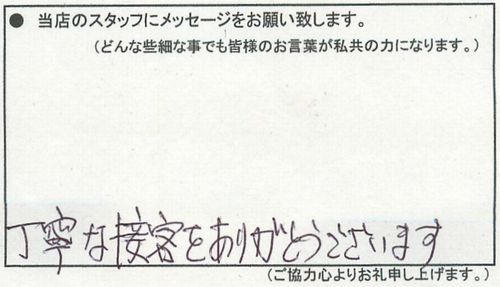 ● 当店のスタッフにメッセージをお願い致します。
(どんな些細な事でも皆様のお言葉が私共の力になります。)
丁寧な接客をありがとうございます
(ご協力心よりお礼申し上げます。)